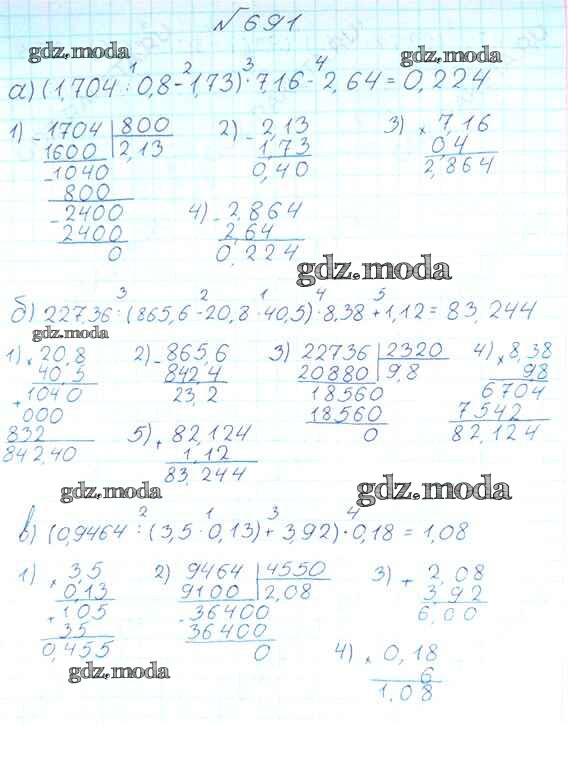 № 691
gdz.moda
gdz.moda
1 2 3 4
а) (1,704 : 0,8 - 1,73) · 7,16 - 2,64 = 0,224
1) - 1704 | 800
1600 2,13
- 1040
800
- 2400
2400
0
2) - 2,13
1,73
0,40
3) × 7,16
0,4
2,864
4) - 2,864
2,64
0,224
gdz.moda
3 2 1 4 5
б) 227,36 : (865,6 - 20,8 · 40,5) · 8,38 + 1,12 = 83,244
gdz.moda
1) × 20,8
40,5
+ 1040
000
832
842,40
2) - 865,6
842,4
23,2
3) 22736 | 2320
20880 9,8
18560
18560
0
4) × 8,38
98
6704
7542
82,124
5) + 82,124
1,12
83,244
gdz.moda
gdz.moda
2 1 3 4
в) (0,9464 : (3,5 · 0,13) + 3,92) · 0,18 = 1,08
1) × 3,5
0,13
+ 105
35
0,455
2) 9464 | 4550
9100 2,08
- 36400
36400
0
3) + 2,08
3,92
6,00
4) × 0,18
6
1,08
gdz.moda
gdz.moda